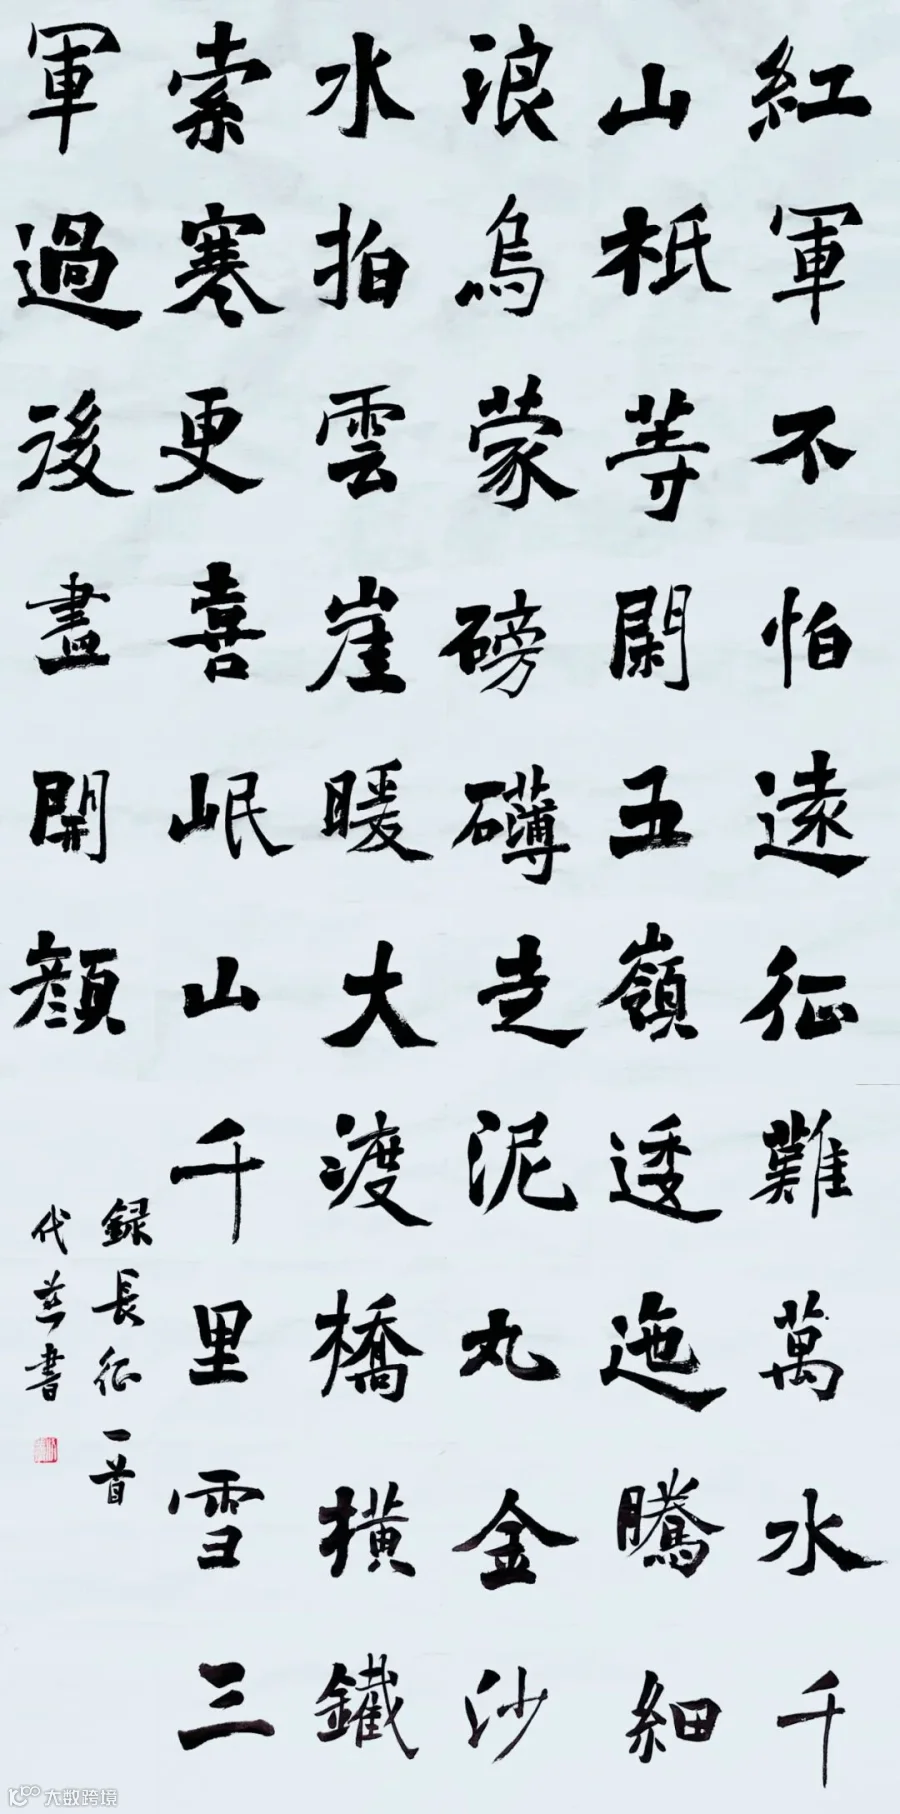 紅軍不怕遠征難萬水千
山衹等閑五嶺逶迤騰細
浪烏蒙磅礴走泥丸金沙
水拍雲崖暖大渡橋橫鐵
索寒更喜岷山千里雪三
軍過後盡開顏
録長征一首
代英書
大数跨境